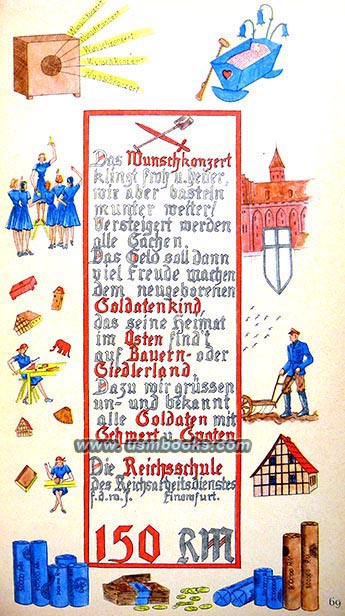 Wunschkonzert
Wunschkonzert
Wunschkonzert
Wunschkonzert
Wunschkonzert
Das Wunschkonzert
klingt froh u. heiter,
wir aber basteln
munter weiter/
Versteigert werden
alle Sachen.
Das Geld soll dann
viel Freude machen
dem neugeborenen
Soldatenkind,
das seine Heimat
im Osten find't
auf Bauern- oder
Siedlerland.
Dazu wir grüssen
un- und bekannt
alle Soldaten mit
Schwert u. Spaten
www.usmbooks.com
Die Reichsschule
des Reichsarbeitsdienstes
f.d.w.J. Finowfurt.
150 RM
69